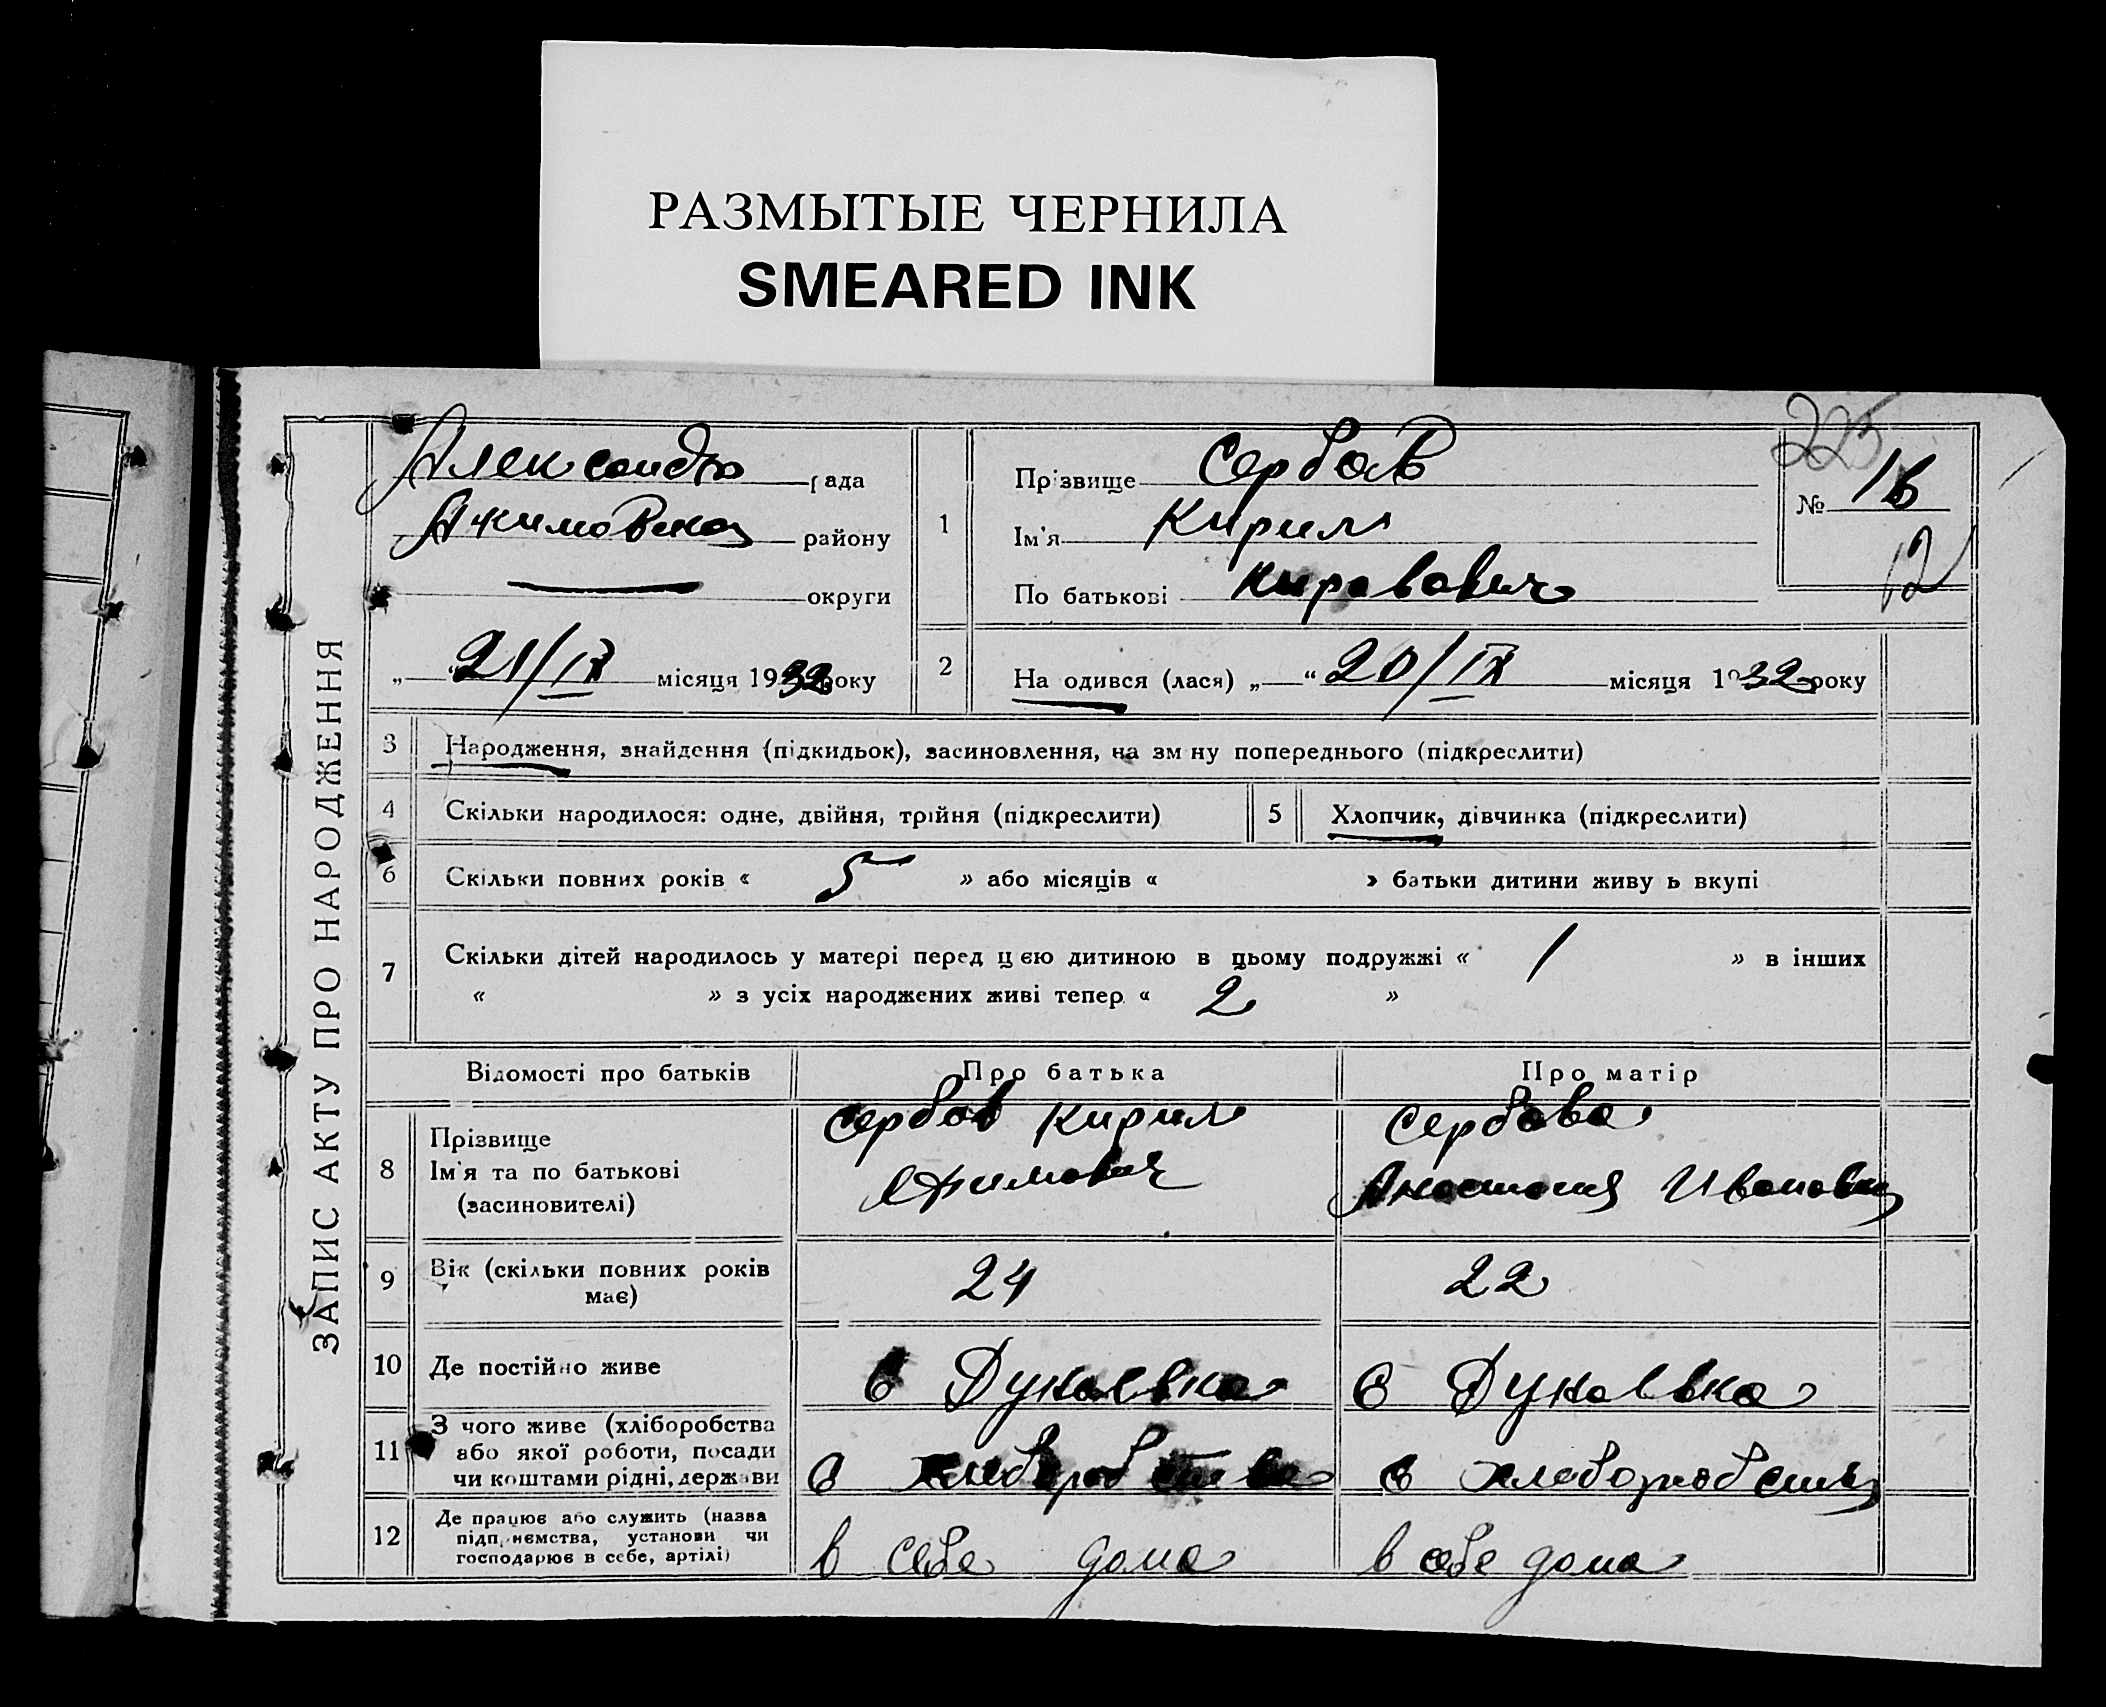 РАЗМЫТЫЕ ЧЕРНИЛА
SMEARED INK
ЗАПИС АКТУ ПРО НАРОДЖЕННЯ
225
Александр рада
Акимовка району
округи
„ “ 21/IX місяця 1932 року
1
Прізвище Сербов
Ім'я Кирил
По батькові Киравович
№ 16
12
2
На одився (лася) „ “ 20/IX місяця 1932 року
3 Народження, знайдення (підкидьок), засиновлення, на зм ну попереднього (підкреслити)
4 Скільки народилося: одне, двійня, трійня (підкреслити) 5 Хлопчик, дівчинка (підкреслити)
6 Скільки повних років « 5 » або місяців « » батьки дитини живу ь вкупі
7 Скільки дітей народилось у матері перед цією дитиною в цьому подружжі « 1 » в інших
« » з усіх народжених живі тепер « 2 »
Відомості про батьків Про батька Про матір
8 Прізвище
Ім'я та по батькові
(засиновителі)
Сербов Кирил
Сербова
Анастасия Ивановна
9 Вік (скільки повних років
має)
24 22
10 Де постійно живе
в Дунаевка в Дунаевка
11 З чого живе (хліборобства
або якої роботи, посади
чи коштами рідні, держави
в хлеборобства в хлеборобства
12 Де працює або служить (назва
підприємства, установи чи
господарює в себе, артілі)
в себе дома в себе дома